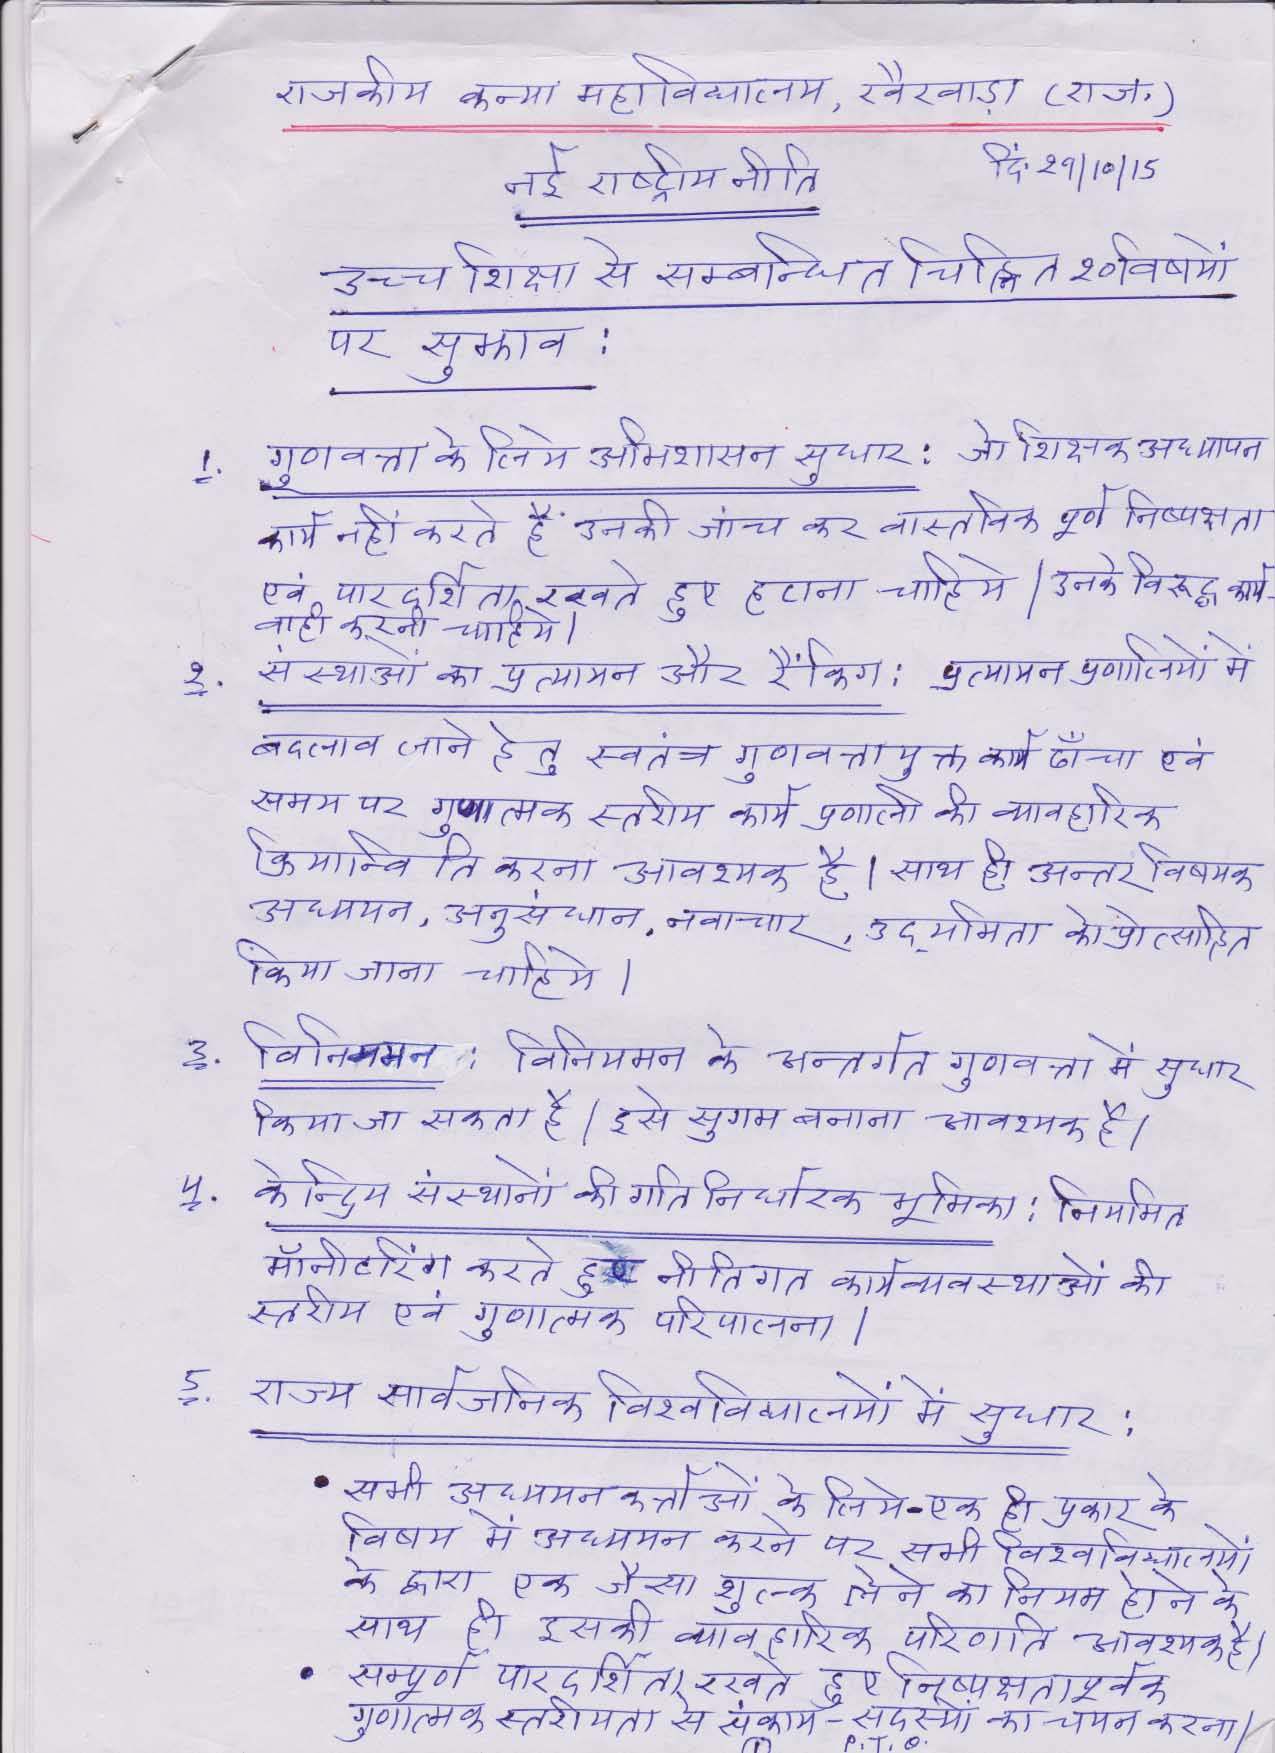 राजकीय कन्या महाविद्यालय, खैरवाड़ा (राज.)
दि. 29/10/15
नई राष्ट्रीय नीति
उच्च शिक्षा से सम्बन्धित चिह्नित २० विषयों
पर सुझाव :
1. गुणवत्ता के लिये अभिशासन सुधार : जो शिक्षक अध्यापन
कार्य नहीं करते हैं उनकी जांच कर वास्तविक पूर्ण निष्पक्षता
एवं पारदर्शिता रखते हुए हटाना चाहिये। उनके विरूद्ध कार्य-
वाही करनी चाहिये।
२. संस्थाओं का प्रत्यायन और रैंकिंग : प्रत्यायन प्रणालियों में
बदलाव लाने हेतु स्वतंत्र गुणवत्तायुक्त कार्य ढाँचा एवं
समय पर गुणात्मक स्तरीय कार्य प्रणाली की व्यावहारिक
क्रियान्विति करना आवश्यक है। साथ ही अन्तर विषयक
अध्ययन, अनुसंधान, नवाचार, उद्यमिता को प्रोत्साहित
किया जाना चाहिये।
३. विनियमन : विनियमन के अन्तर्गत गुणवत्ता में सुधार
किया जा सकता है। इसे सुगम बनाना आवश्यक है।
४. केन्द्रिय संस्थानों की गति निर्धारक भूमिका : नियमित
मॉनीटरिंग करते हुए नीतिगत कार्यव्यवस्थाओं की
स्तरीय एवं गुणात्मक परिपालना।
5. राज्य सार्वजनिक विश्वविद्यालयों में सुधार :
• सभी अध्ययनकर्त्ताओं के लिये - एक ही प्रकार के
विषय में अध्ययन करने पर सभी विश्वविद्यालयों
के द्वारा एक जैसा शुल्क लेने का नियम होने के
साथ ही इसकी व्यावहारिक परिणति आवश्यक है।
• सम्पूर्ण पारदर्शिता रखते हुए निष्पक्षतापूर्वक
गुणात्मक स्तरीयता से संकाय - सदस्यों का चयन करना।
(1) P.T.O.